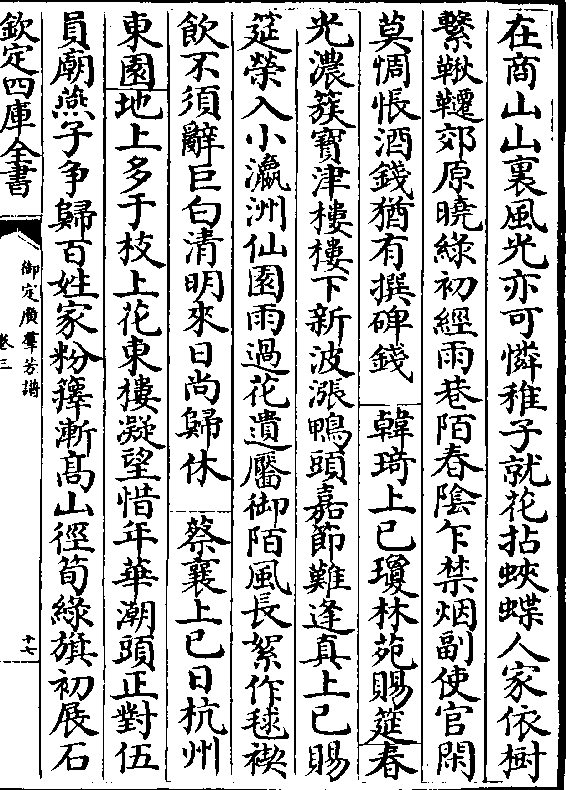 在商山山裏風光亦可憐稚子就花拈蛺蝶人家依樹
繫鞦韆郊原曉綠初經雨巷陌春隂乍禁烟副使官閑
莫惆悵酒錢猶有撰碑錢 韓琦上巳瓊林苑賜筵春
光濃簇寶津樓樓下新波漲鴨頭嘉節難逢真上巳賜
筵榮入小瀛洲仙園雨過花遺靨御陌風長絮作毬禊
飲不須辭巨白清明來日尚歸休 蔡襄上巳日杭州
東園地上多于枝上花東樓凝望惜年華潮頭正對伍
員廟燕子争歸百姓家粉籜漸髙山徑筍綠旗初展石
欽定四庫全書
御定廣羣芳譜
卷三
十七